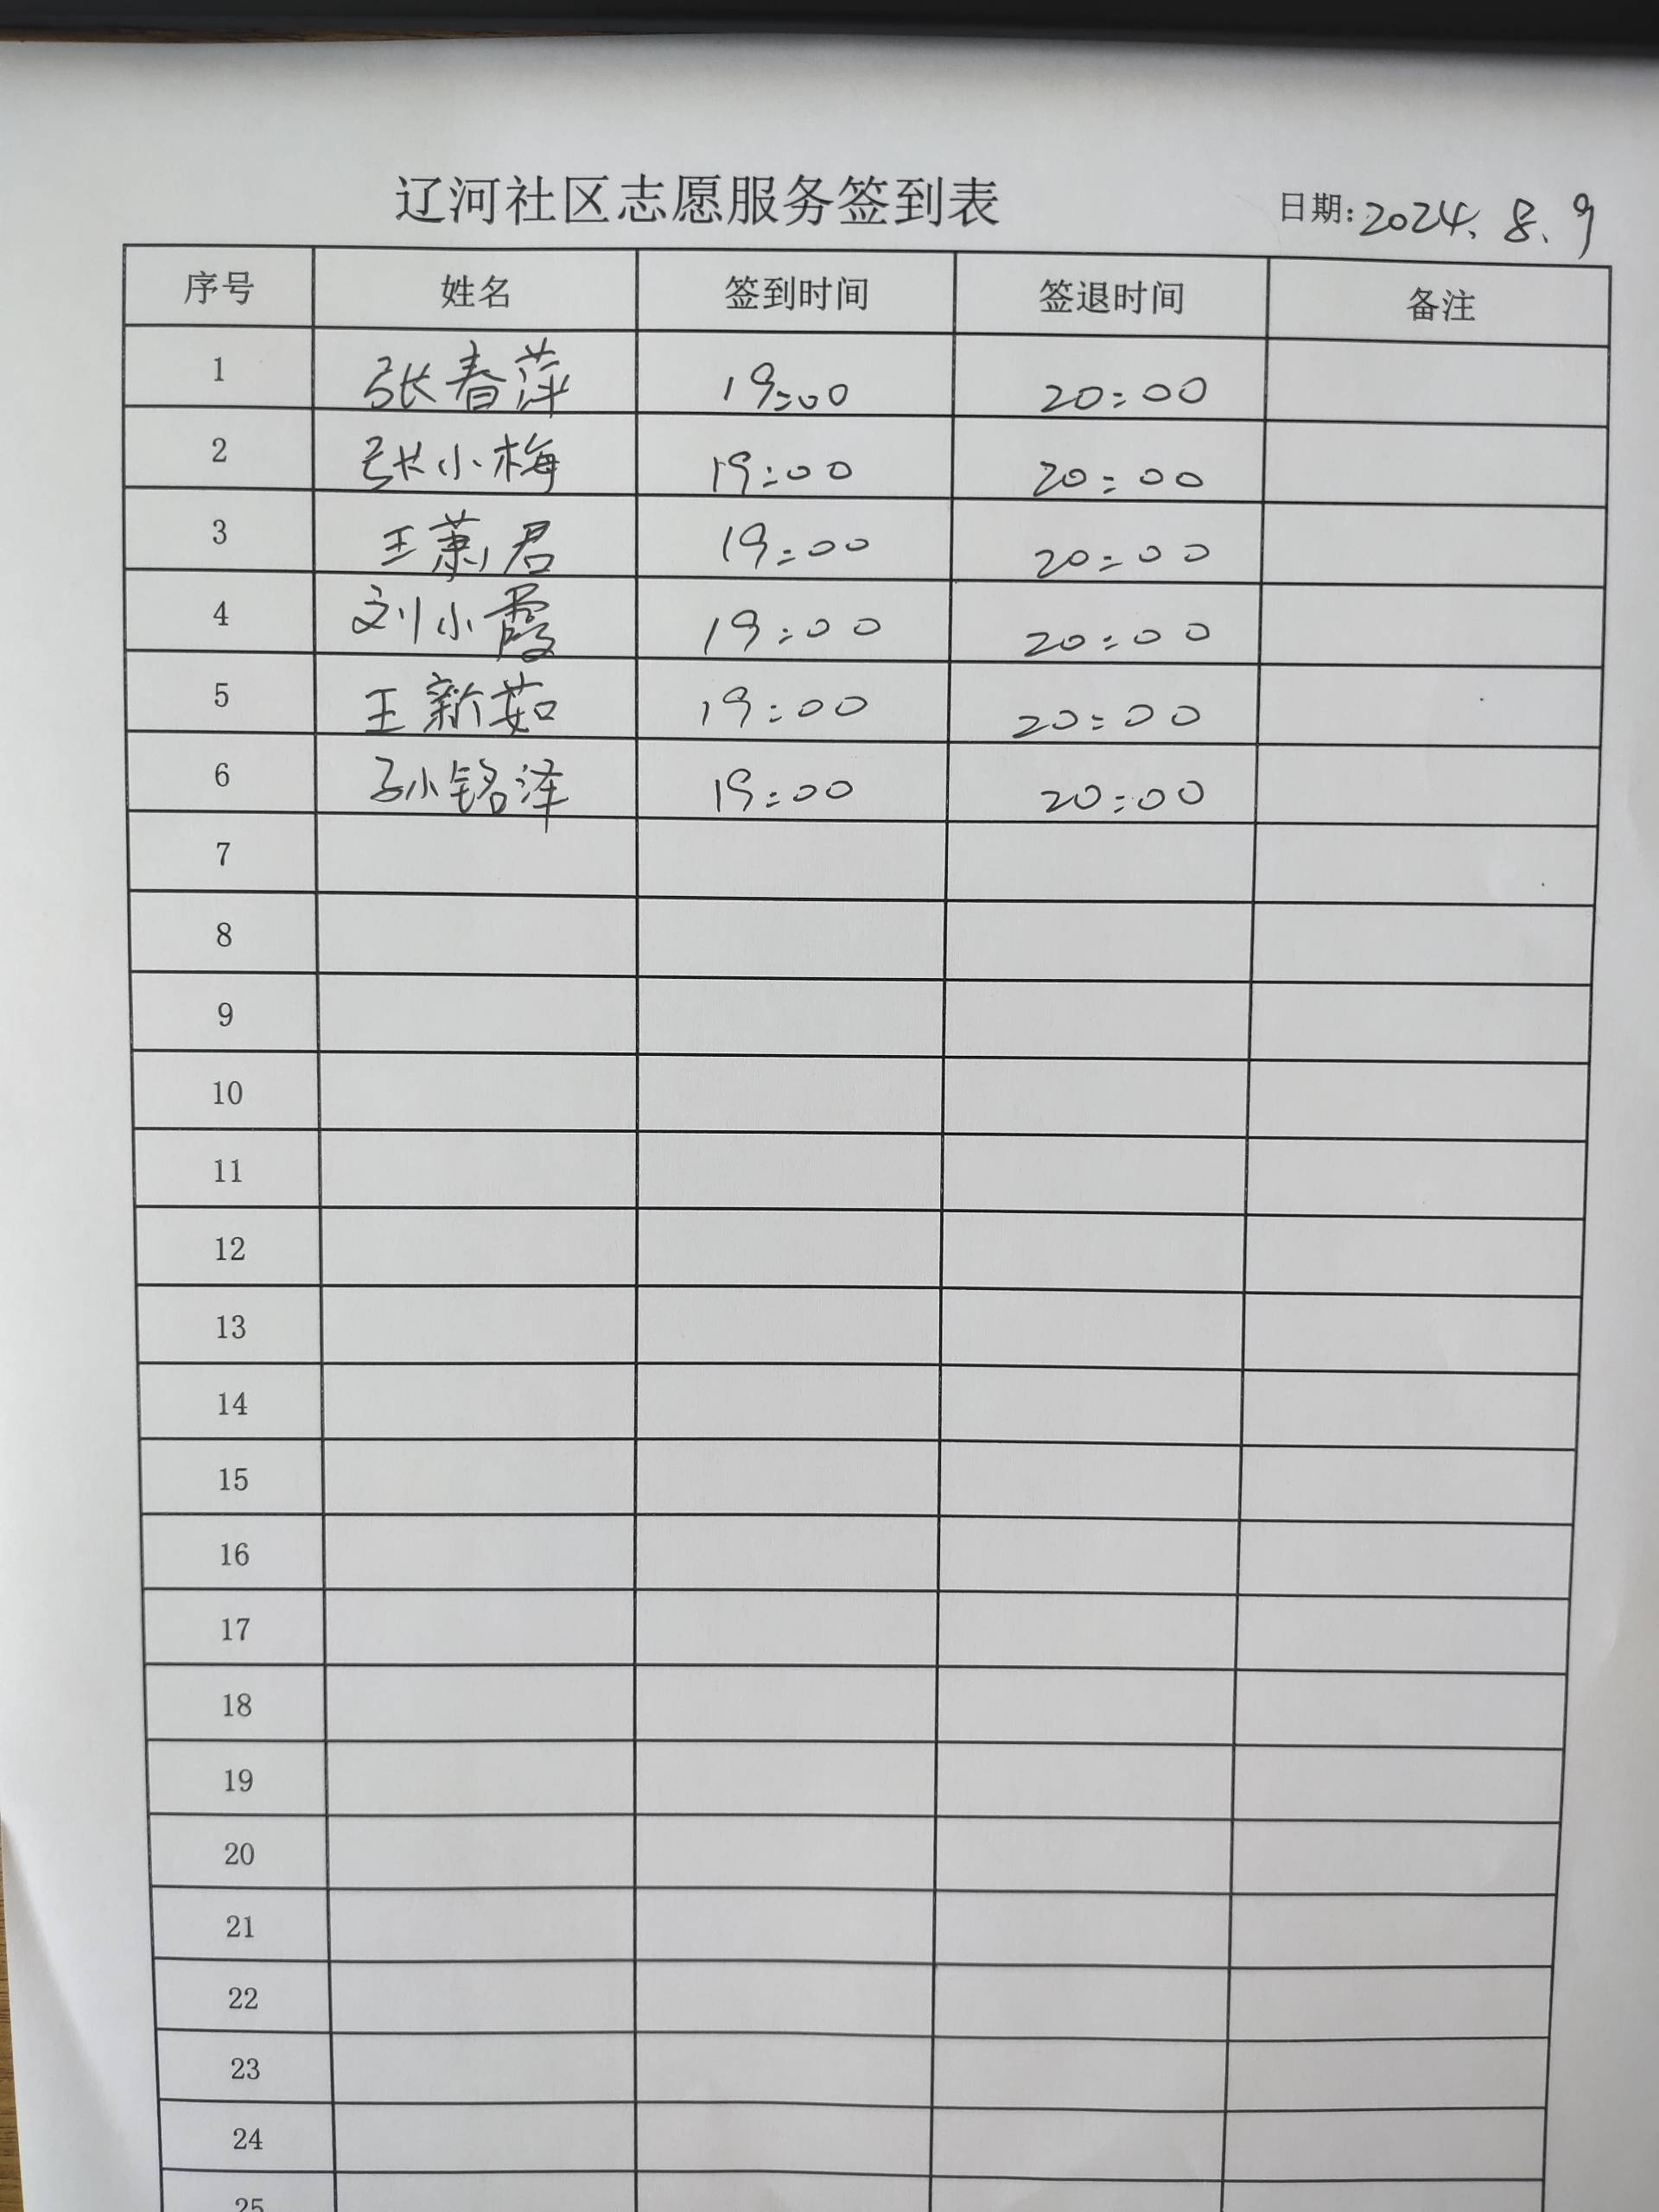 辽河社区志愿服务签到表 日期:2024.8.9
序号 姓名 签到时间 签退时间 备注
1 张春萍 19:00 20:00
2 张小梅 19:00 20:00
3 王萧君 19:00 20:00
4 刘小霞 19:00 20:00
5 王新茹 19:00 20:00
6 孙铭泽 19:00 20:00
7
8
9
10
11
12
13
14
15
16
17
18
19
20
21
22
23
24
25